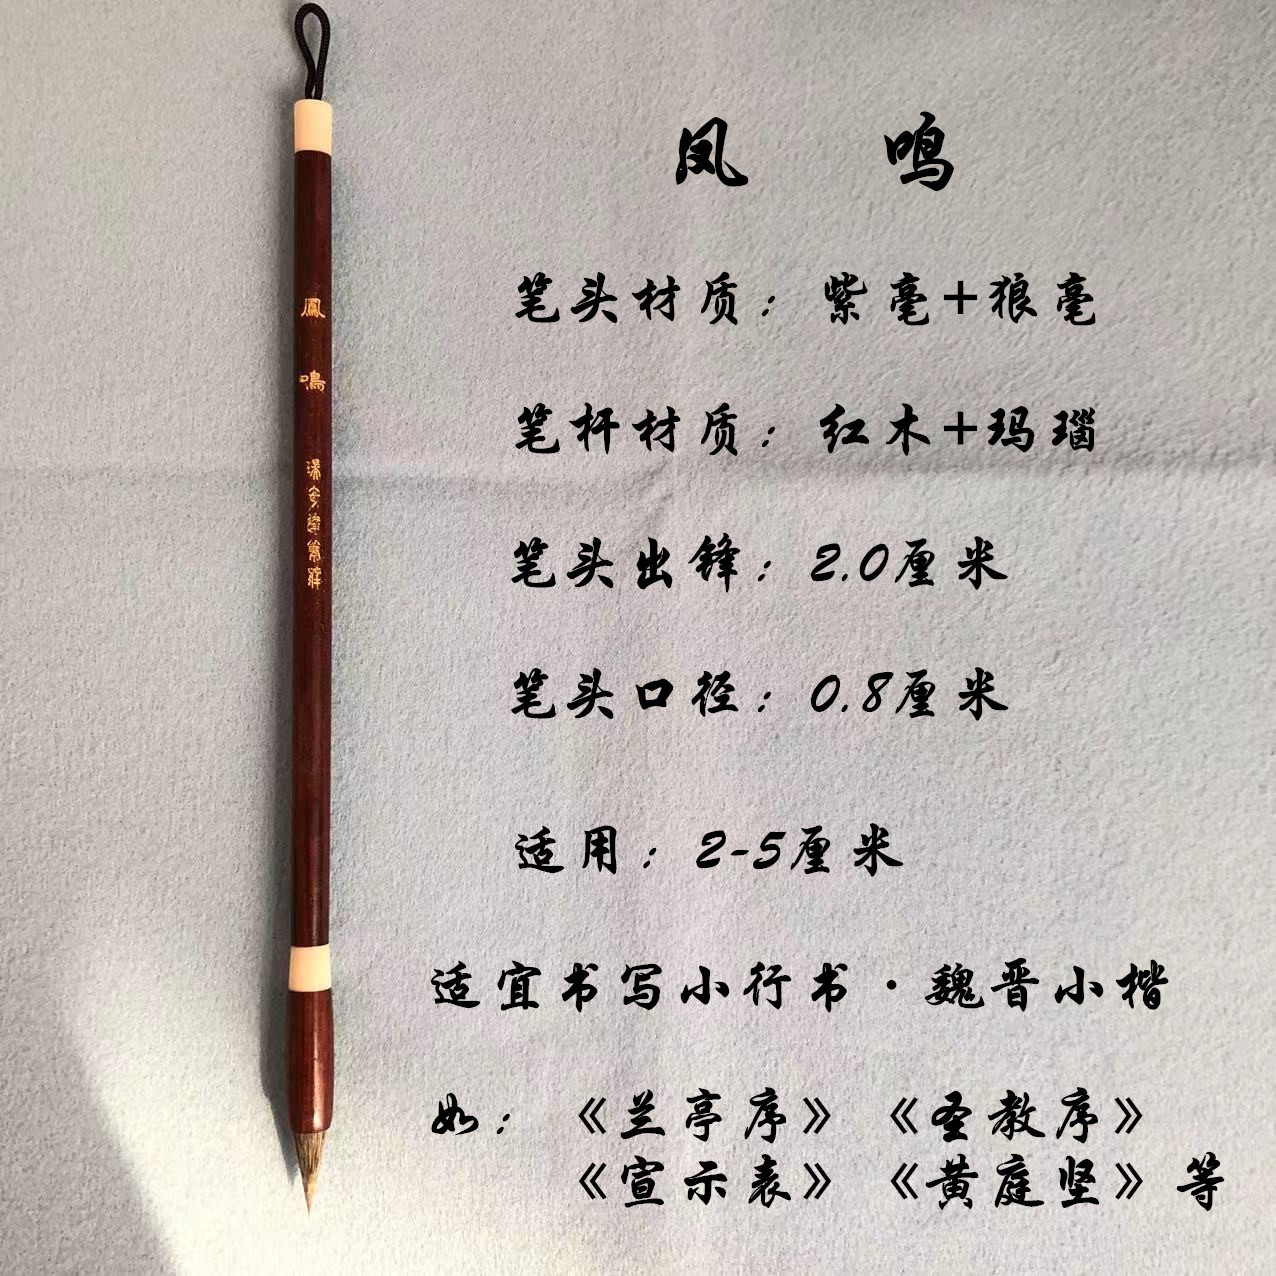 凤 鸣
笔头材质：紫毫+狼毫
笔杆材质：红木+玛瑙
笔头出锋：2.0厘米
笔头口径：0.8厘米
适用：2-5厘米
适宜书写小行书·魏晋小楷
如：《兰亭序》《圣教序》
《宣示表》《黄庭坚》等
鳳鳴